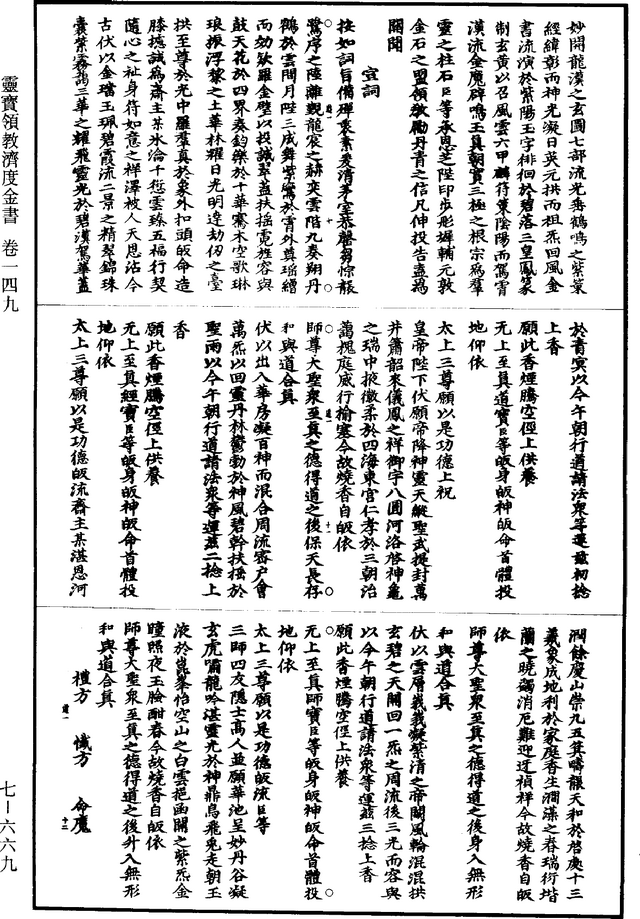 妙開龍漢之玄圖七部流光垂鶴鳴之紫篆
經緯彰而神光凝日英元拱而祖炁回風金
書流演於紫陽玉字徘徊於碧落二皇鳳篆
制玄黃以召風雲六甲麟符策陰陽而駕霄
漢流金魔辟鳴玉真朝寶三極之根宗為羣
靈之柱石臣等承恩芝陛印步彤墀輔元敦
金石之盟領教勵丹青之信凡伸投告盍為
關聞
宣詞
按如詞旨備殫衷素爰清茅室恭罄芻悰龍
鷺序之陸離觀龍宸之赫奕雲階九奏朔丹
鶴於雲間月陛三成舞紫鸞於霄外奠瑶繒
而効欵羅金璧以投誠翠蓋扶摇霓旌容與
鼓天花於四界奏鈞樂於十華騫木空歌琳
琅振浮黎之土華林耀日光明達劫仞之臺
拱至尊於光中羅羣真於象外扣頭皈命造
膝攄誠為齋主某氷淪千愆雲臻五福行契
隨心之祉身符如意之祥澤被人天恩沾今
古伏以金璫玉珮碧霞流二景之精翠錦珠
囊紫霧藹三華之耀飛靈光於碧漢駕華蓋
於青冥以今午朝行道請法衆等運兹初捻
上香
願此香煙騰空徑上供養
无上至真道寶臣等皈身皈神皈命首體投
地仰依
太上三尊願以是功德上祝
皇帝陛下伏願帝降神靈天縱聖武提封萬
井簫韶來儀鳳之祥御宇八圓河洛啓神龜
之瑞中掖徽柔於四海東宮仁孝於三朝治
藹槐庭威行榆塞今故燒香自皈依
師尊大聖衆至真之德得道之後保天長存
和與道合真
伏以出入華房凝百神而混合周流密户會
萬炁以回靈丹林鬱勃於神風碧幹扶摇於
聖雨以今午朝行道請法衆等運兹二捻上
香
願此香煙騰空徑上供養
无上至真經寶臣等皈身皈神皈命首體投
地仰依
太上三尊願以是功德皈流齋主某湛恩河
潤餘慶山崇九五箕疇龍天和於啓處十三
羲象成地利於家庭香生澗藻之春瑞衍堦
蘭之曉蠲消厄難迎迓禎祥今故燒香自皈
依
師尊大聖衆至真之德得道之後身入無形
和與道合真
伏以雲層峩峩凝紫清之帝闕風輪混混拱
玄碧之天關回一炁之周流後三光而容與
以今午朝行道請法衆等運兹三捻上香
願此香煙騰空徑上供養
无上至真師寶臣等皈身皈神皈命首體投
地仰依
太上三尊願以是功德皈流臣等
三師四友隱士高人並願華池呈妙丹谷凝
玄虎嘯龍吟湛靈光於神鼎烏飛兎走朝玉
液於崑峯怡空山之白雲挹函關之紫炁金
瞳照夜玉臉酣春今故燒香自皈依
師尊大聖衆至真之德得道之後升入無形
和與道合真
禮方 懺方 命魔
靈寶領教濟度金書 卷一四九
七—六六九